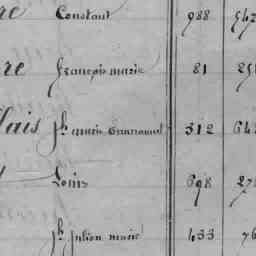 re Constant 988 547
re François marie 81 25
lais Jh marie Emmanuel 312 64
Louis 698 27
Jh Julien marie 433 76